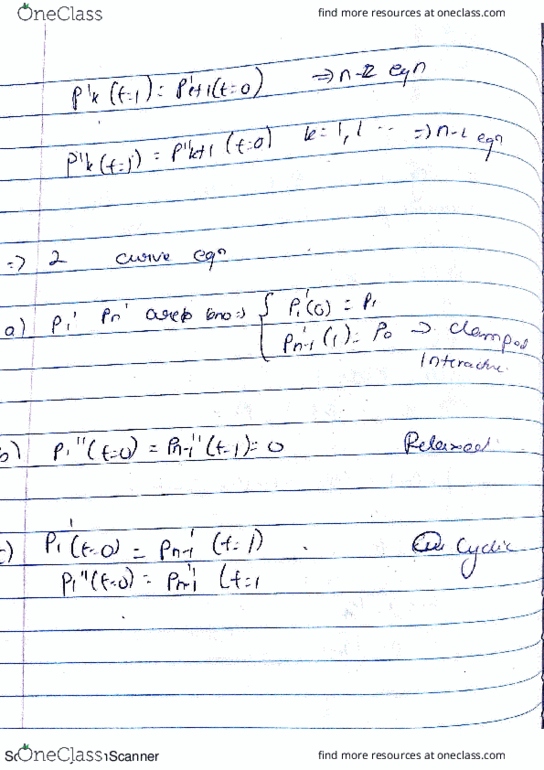 OneClass find more resources at oneclass.com
P'k (t=1) = P'k+1 (t=0) ⇒ n-2 eqn
P''k (t=1) = P''k+1 (t=0) k = 1, 2 ... ⇒ n-2 eqn
⇒ 2 curve eqn
a) P1' Pn' { P1'(0) = P1
Pn-1'(1) = Pn → clamped
b) P1''(t=0) = Pn-1''(t=1) = 0 Relaxed
c) P1'(t=0) = Pn-1'(t=1) Cyclic
P1''(t=0) = Pn-1''(t=1
OneClass Scanner find more resources at oneclass.com